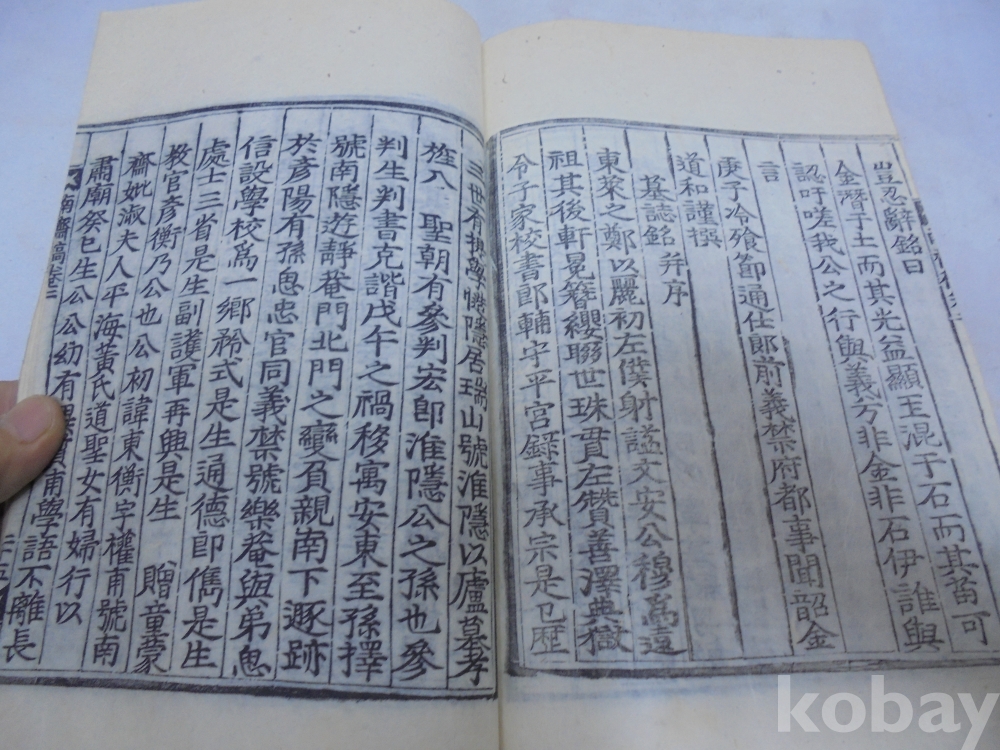 豈忍辭銘曰
金潛于土而其光益顯玉混于石而其苗可
認吁嗟我公之行與義方非金非石伊誰與
言
庚子冷飱節通仕郞前義禁府都事聞韶金
道和謹撰
墓誌銘 并序
東萊之鄭以麗初左僕射諡文安公穆爲逺
祖其後軒冕簪纓聯世珠貫左贊善澤典獄
令子家校書郞輔守平宮錄事承宗是已歷
三世有揆 隱居瑞山號淮隱以廬墓孝
旌八 聖朝有參判宏卽淮隱公之孫也參
判生判書克諧戊午之禍移寓安東至孫擇
號南隱遊靜菴門北門之變負親南下遯跡
於彥陽有孫息忠官同義禁號樂菴與弟息
信設學校爲一鄕矜式是生通德郞儁是生
處士三省是生副護軍再興是生 贈童蒙
敎官彥衡乃公也公初諱東衡字權甫號南
齋妣淑夫人平海黃氏道聖女有婦行以
肅廟癸巳生公公幼有 質甫學語不離長
南齋稿卷二
二十五
kobay